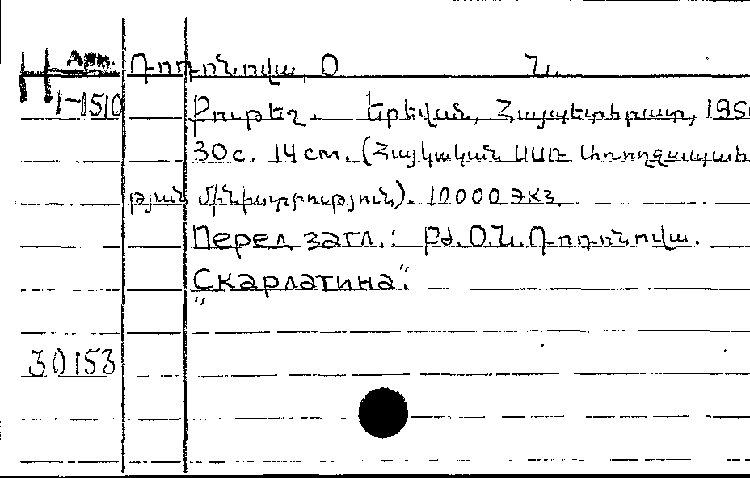 Арм. Դոդոնովա, Օ Ն.
Н
1-1510 Քութեշ. Երևան, Հայպետհրատ, 195
30 с. 14 cm. (Հայկական ՍՍՌ Առողջապահ
թյան մինիստրություն). 10000 экз.
Перед загл.: Բժ. Օ. Ն. Դոդոնովա.
"Скарлатина".
30153